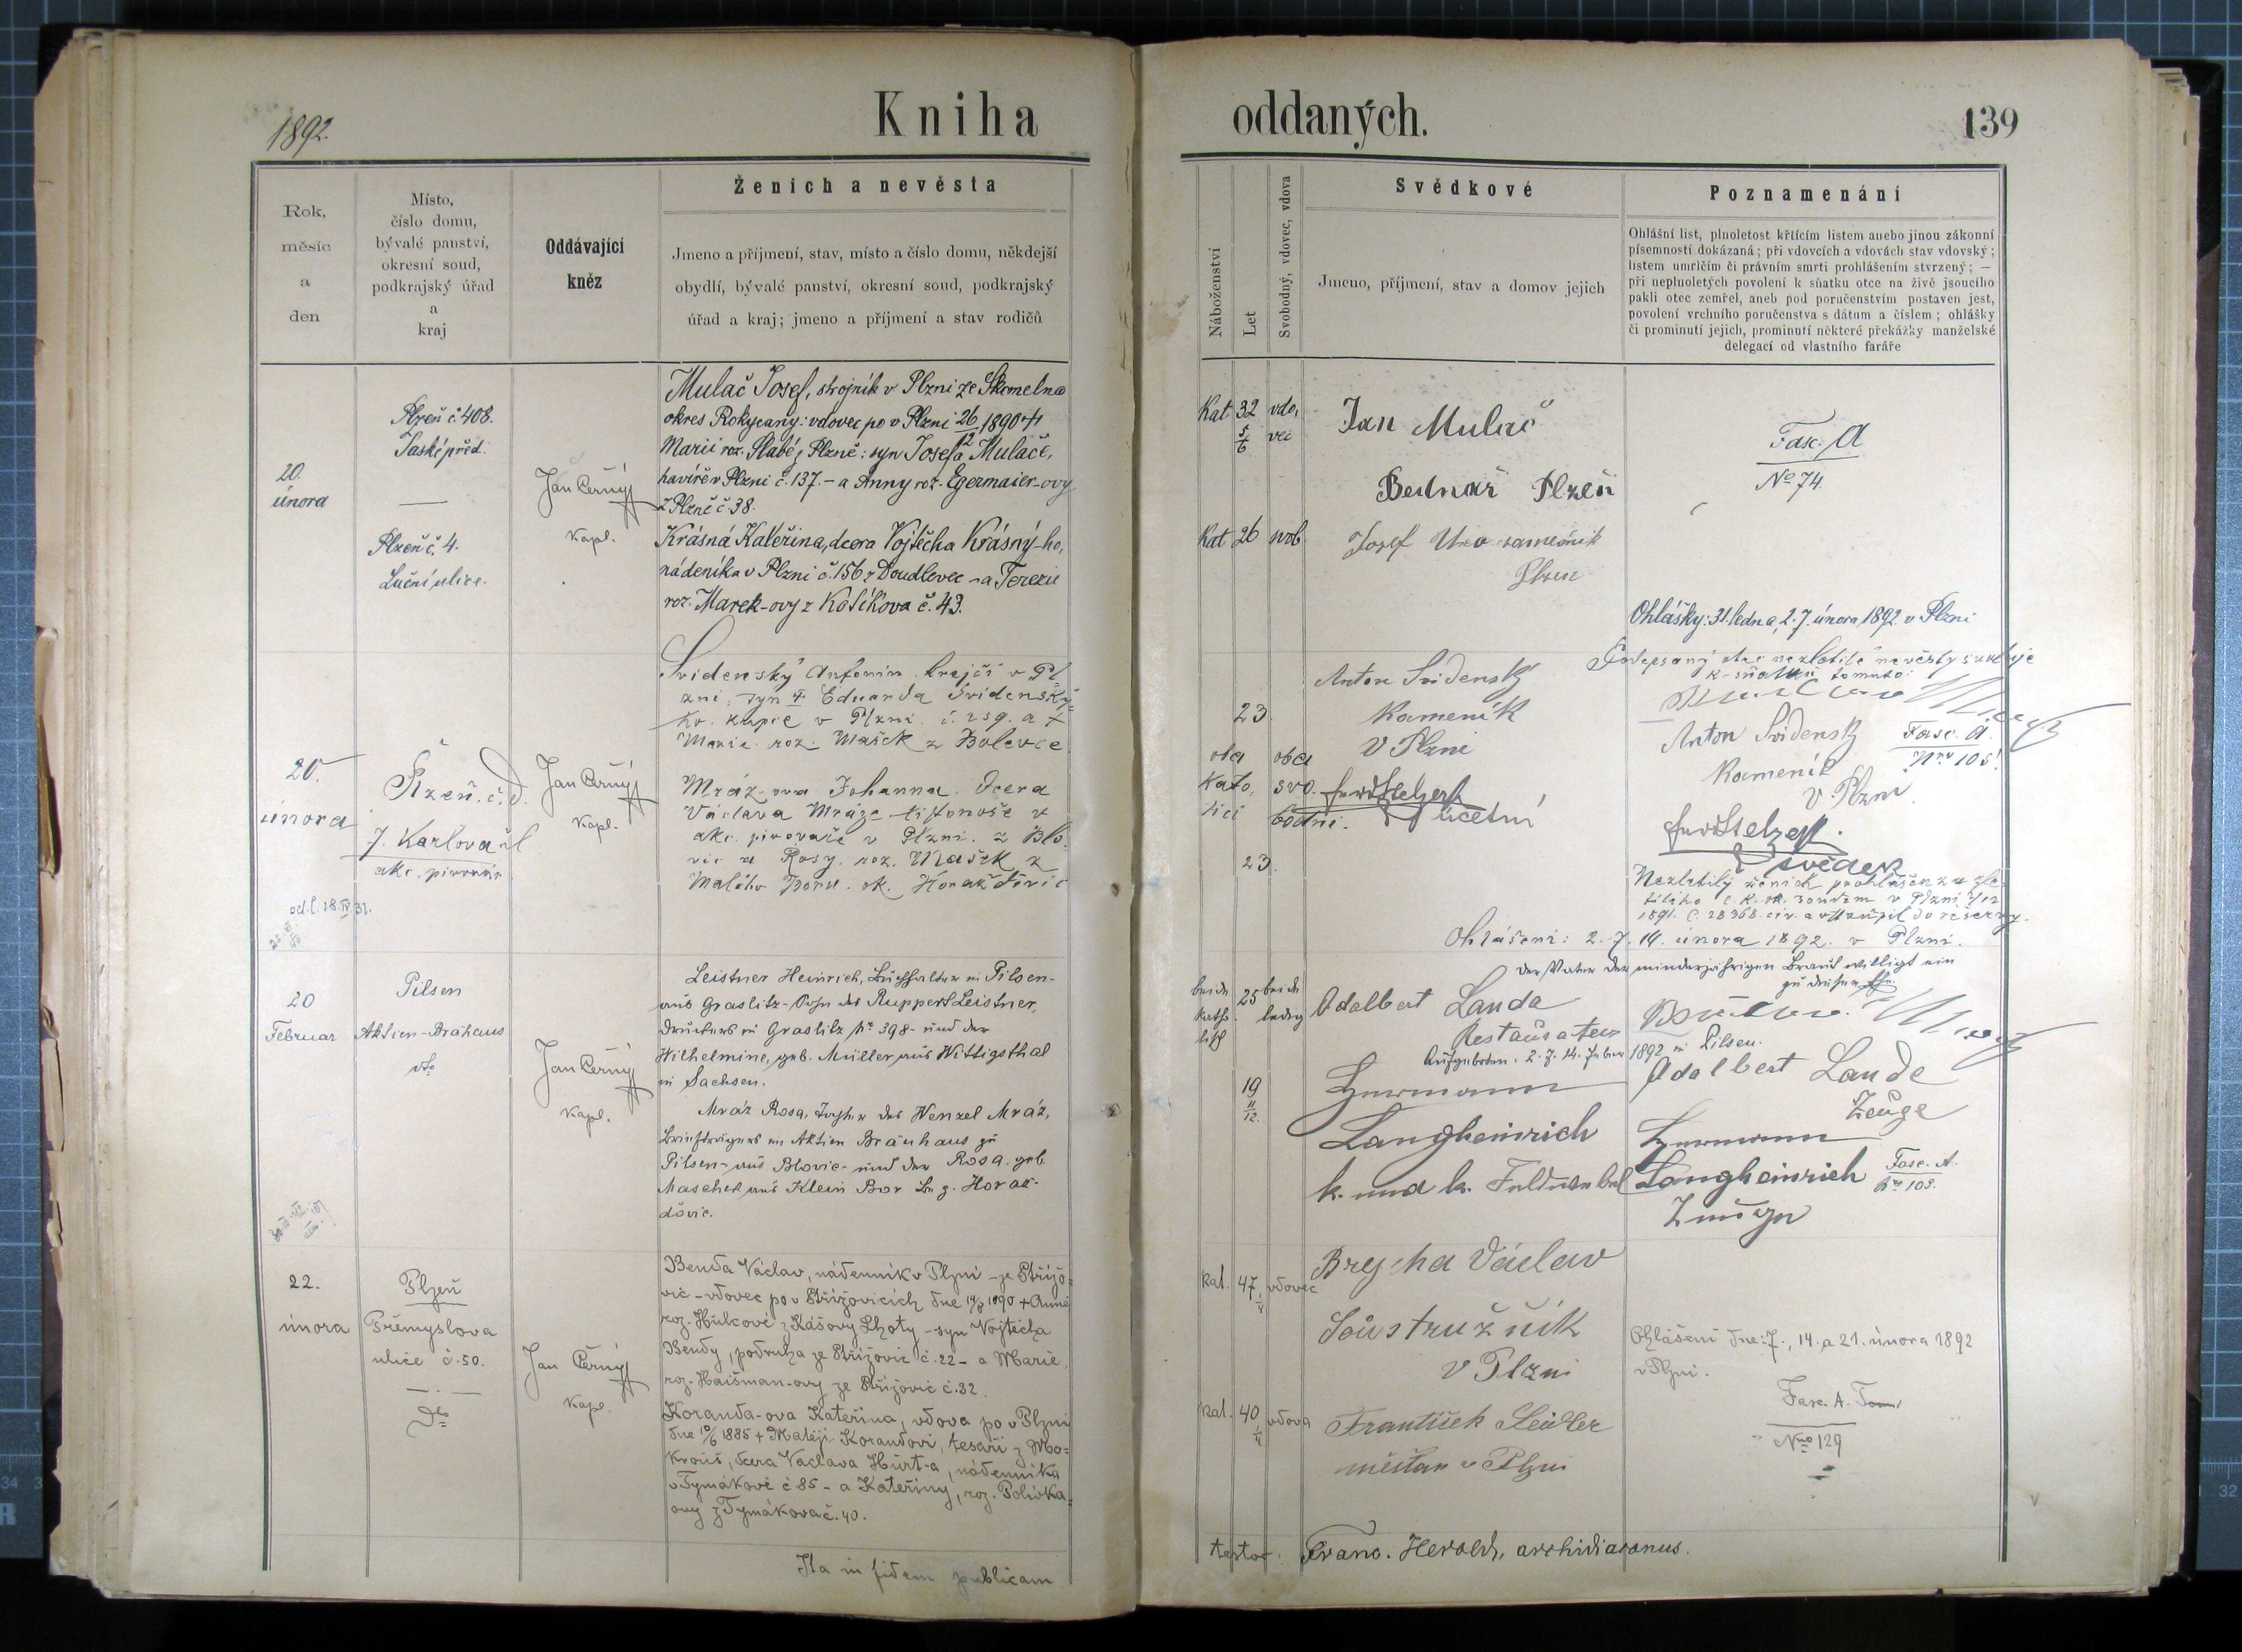 1892.
Kniha
oddaných.
139
Rok,
měsíc
a
den
Místo,
číslo domu,
bývalé panství,
okresní soud,
podkrajský úřad
a
kraj
Oddávající
kněz
Ženich a nevěsta
Jmeno a příjmení, stav, místo a číslo domu, někdejší
obydlí, bývalé panství, okresní soud, podkrajský
úřad a kraj; jmeno a příjmení a stav rodičů
Náboženství
Let
Svobodný, vdovec, vdova
Svědkové
Jmeno, příjmení, stav a domov jejich
Poznamenání
Ohlášní list, plnoletost křtícím listem anebo jinou zákonní
písemností dokázaná; při vdovcích a vdovách stav vdovský;
listem umrlčím či právním smrti prohlášením stvrzený; —
při neplnoletých povolení k sňatku otce na živě jsoucího
pakli otec zemřel, aneb pod poručenstvím postaven jest,
povolení vrchního poručenstva s dátum a číslem; ohlášky
či prominutí jejich, prominutí některé překážky manželské
delegací od vlastního faráře
20.
února
Plzeň č. 408.
Saské před.
Plzeň č. 4.
Luční ulice.
Jan Černý
Kapl.
Mulač Josef, strojník v Plzni ze Skomelna
okres Rokycany: vdovec po v Plzni 26/12 1890 †
Marii roz. Slabé z Plzně: syn Josefa Mulače,
havíře v Plzni č. 137. – a Anny roz. Egermaier-ovy
z Plzně č. 38.
Krásná Kateřina, dcera Vojtěcha Krásný-ho,
nádeníka v Plzni č. 156 z Doudlevec – a Terezie
roz. Marek-ovy z Kotíkova č. 43.
Kat 32 5/6 vdovec
Kat 26 svob
Jan Mulač
Bednář Plzeň
Josef zámečník
Plzen
Fasc. A
No 74.
Ohlášky: 31. ledna, 2. 7. února 1892 v Plzni
20.
února
Plzeň. č. d.
7. Karlova ul
akc. pivovár
od. č. 18. IV. 31.
Jan Černý
Kapl.
Svidenský Antonín krejčí v Pl
zni, syn † Eduarda Svidenský=
ho. kupce v Plzni č. 259. a †
Marie. roz. Mašek z Bolevce
Mráz-ova Johanna. dcera
Václava Mráze listonoše v
akc. pivovaře v Plzni. z Blo
vic a Rosy. roz. Mašek z
Malého Boru. ok. Horažďovic
23.
oba
kato,
lici
oba
svo.
bodni.
23.
Anton Svidenský
Kameník
V Plzni
účetní
Podepsaný otec nezletilé nevěsty svoluje
k sňatku tomuto:
Anton Svidenský
Kameník
V. Plzni
Fasc. A.
Nro 105.
svědek
Nezletilý ženich prohlášen za zle
tilého c. k. ok. soudem v Plzni
1891. č. 28368. civ. a vstoupil do reservy.
Ohlášení: 2. 7. 14. února 1892. v Plzni.
20
Februar
Pilsen
Aktien-Bräuhaus
dto
Jan Černý
Kapl.
Leistner Heinrich, Buchhalter in Pilsen-
aus Graslitz-Sohn des Ruppert Leistner,
Druckers in Graslitz Nr. 398- und der
Wilhelmine, geb. Müller aus Wittigsthal
in Sachsen.
Mráz Rosa, Tochter des Wenzel Mráz,
Briefträgers im Aktien Bräuhaus zu
Pilsen-aus Blovic-und der Rosa, geb.
Maschek aus Klein Bor Bz. Horaž-
ďovic.
beide
katho
lisch
25
beide
ledig
19 11/12.
der Vater der minderjährigen Braut willigt ein
zu dieser Ehe.
Adalbert Landa
Restaurateur
Aufgeboten. 2. 7. 14. Feber 1892 in Pilsen.
Hermann
Langheinrich
k. und k. Feldwebel
Adalbert Lande
Zeuge
Hermann
Langheinrich
Zeuge
Fasc. A.
No 109.
22.
února
Plzeň
Přemyslova
ulice č. 50.
Dto
Jan Černý
Kapl.
Benda Václav, nádenník v Plzni – ze Střížo=
vic – vdovec po v Střížovicích dne 14/8 1890 † Anně
roz. Hůlcové z Kášovy Lhoty – syn Vojtěcha
Bendy, podruha ze Střížovic č. 22 – a Marie,
roz. Haišman-ovy ze Střížovic č. 32.
Koranda-ova Kateřina, vdova po v Plzni
dne 10/6 1885 † Matěji Korandovi, tesaři z Mo=
krouš, dcera Václava Hůrt-a, nádenníka
v Tymákově č 85 – a Kateřiny, roz. Polívka=
ovy z Tymákova č. 40.
kat. 47 1/4 vdovec
kat. 40 1/4 vdova
Brejcha Václav
Soustružník
V Plzni
František Seidler
měšťan v Plzni
Ohlášení dne: 7., 14. a 21. února 1892
v Plzni.
Fasc. A. Tom
Nro 129
Ita in fidem publicam
testor. Franc. Herold, archidiaconus.